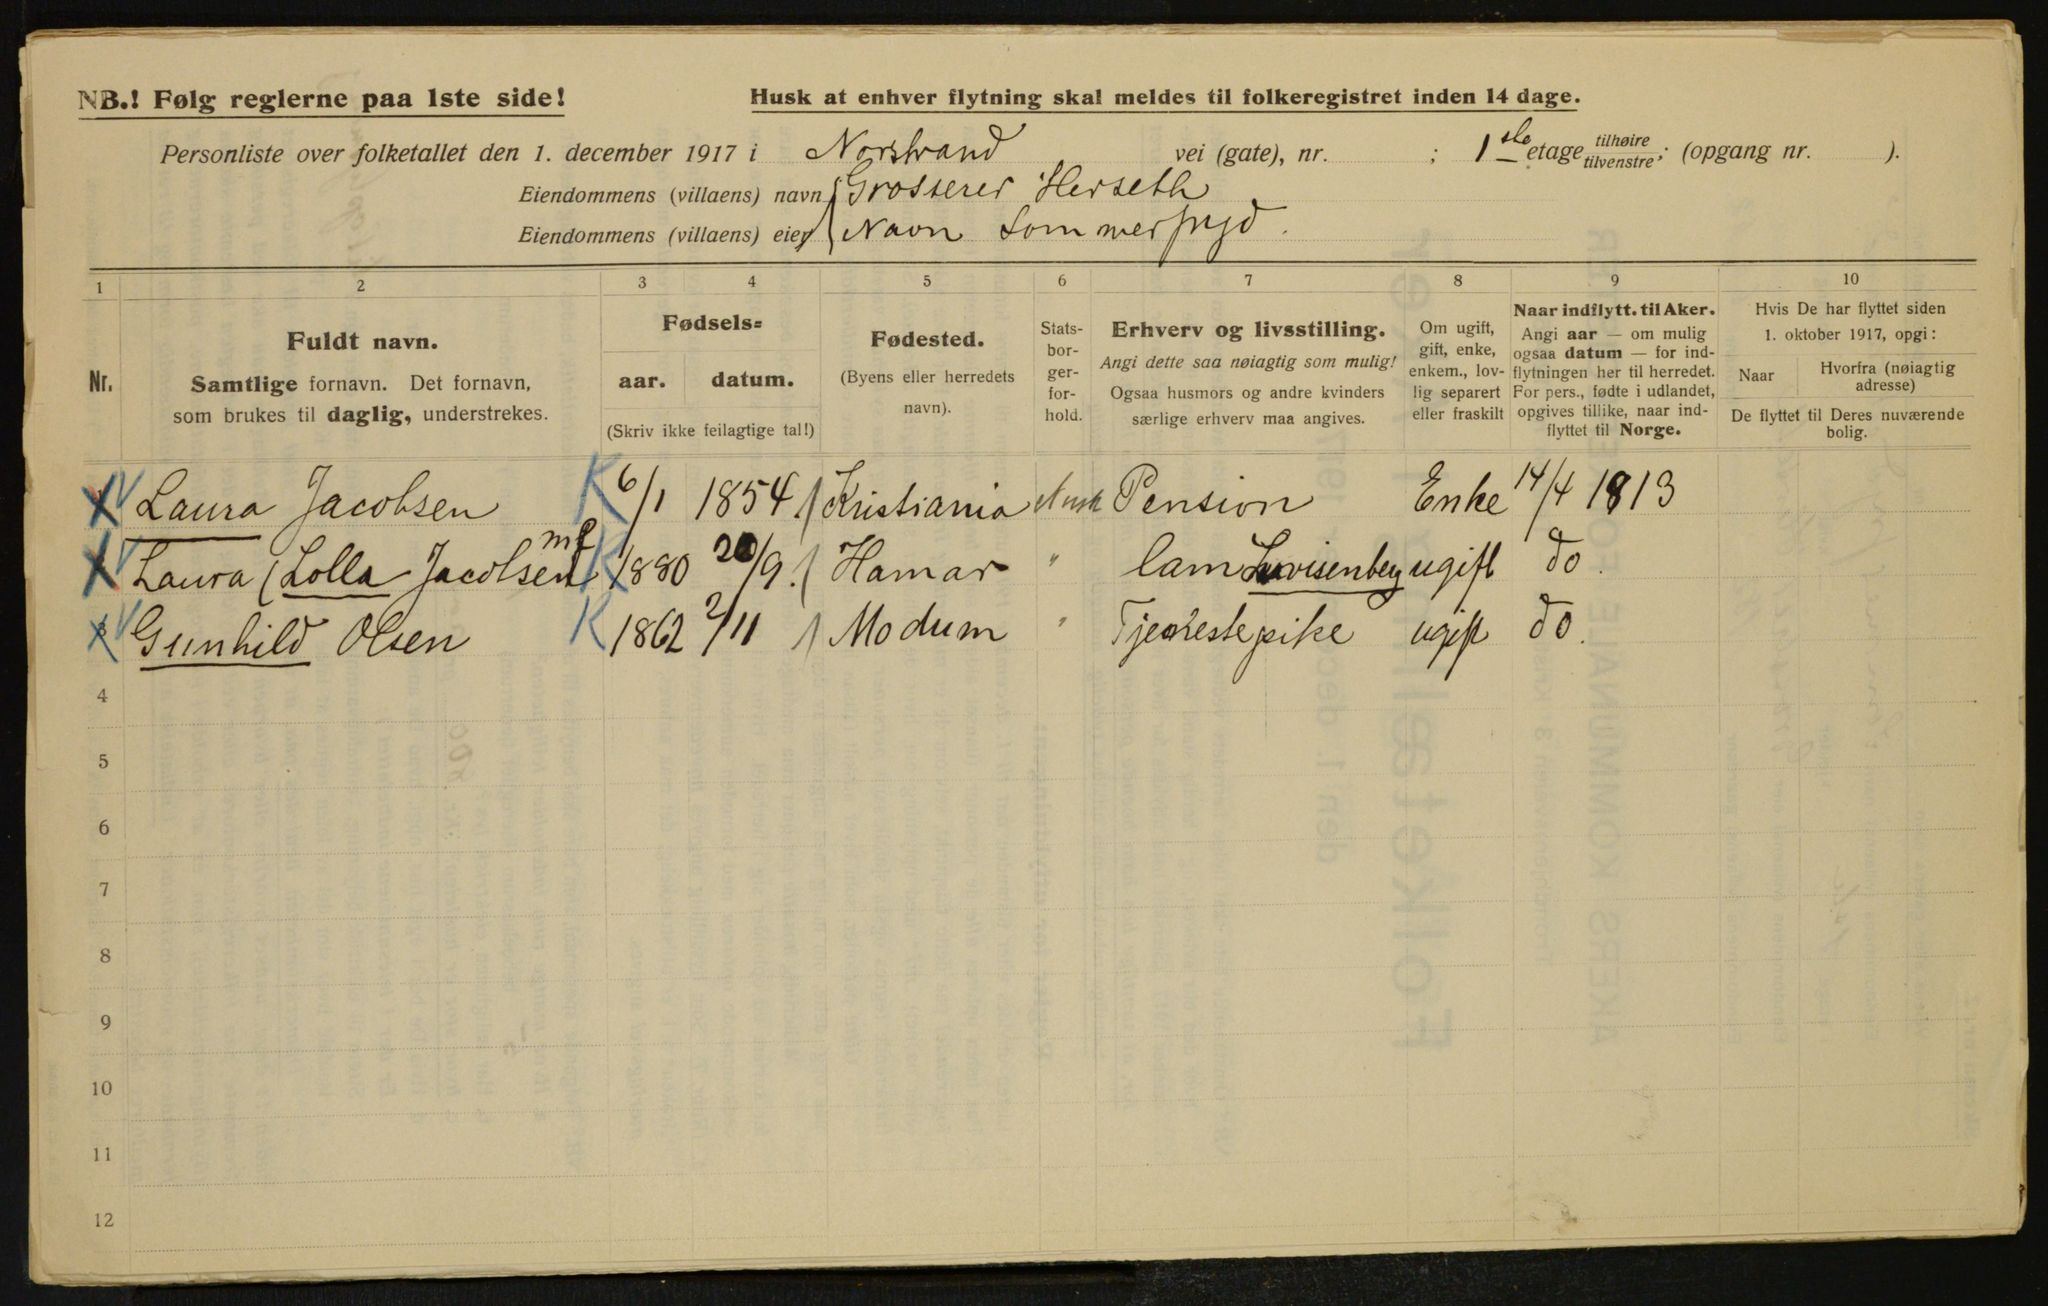 NB.! Følg reglerne paa 1ste side!
Husk at enhver flytning skal meldes til folkeregistret inden 14 dage.
Personliste over folketallet den 1. december 1917 i Norstrand vei (gate), nr. ; 1ste etage tilhøire tilvenstre; (opgang nr. ).
Eiendommens (villaens) navn Grosserer Herseth
Eiendommens (villaens) eier Navn Sommerfryd.
1 2 3 4 5 6 7 8 9 10
Nr.
Fuldt navn.
Samtlige fornavn. Det fornavn,
som brukes til daglig, understrekes.
Fødsels=
aar. datum.
(Skriv ikke feilagtige tal!)
Fødested.
(Byens eller herredets
navn).
Stats-
bor-
ger-
for-
hold.
Erhverv og livsstilling.
Angi dette saa nøiagtig som mulig!
Ogsaa husmors og andre kvinders
særlige erhverv maa angives.
Om ugift,
gift, enke,
enkem., lov-
lig separert
eller fraskilt
Naar indflytt. til Aker.
Angi aar — om mulig
ogsaa datum — for ind-
flytningen her til herredet.
For pers., fødte i udlandet,
opgives tillike, naar ind-
flyttet til Norge.
Hvis De har flyttet siden
1. oktober 1917, opgi:
Naar
Hvorfra (nøiagtig
adresse)
De flyttet til Deres nuværende
bolig.
Laura Jacobsen K 6/1 1854 Kristiania Norsk Pension Enke 14/4 1913
Laura (Lolla Jacobsen K 1880 20/9. Hamar " Lovisenberg ugift do.
3 Gunhild Olsen K 1862 2/11 Modum " Tjenestepike ugift do.
4
5
6
7
8
9
10
11
12